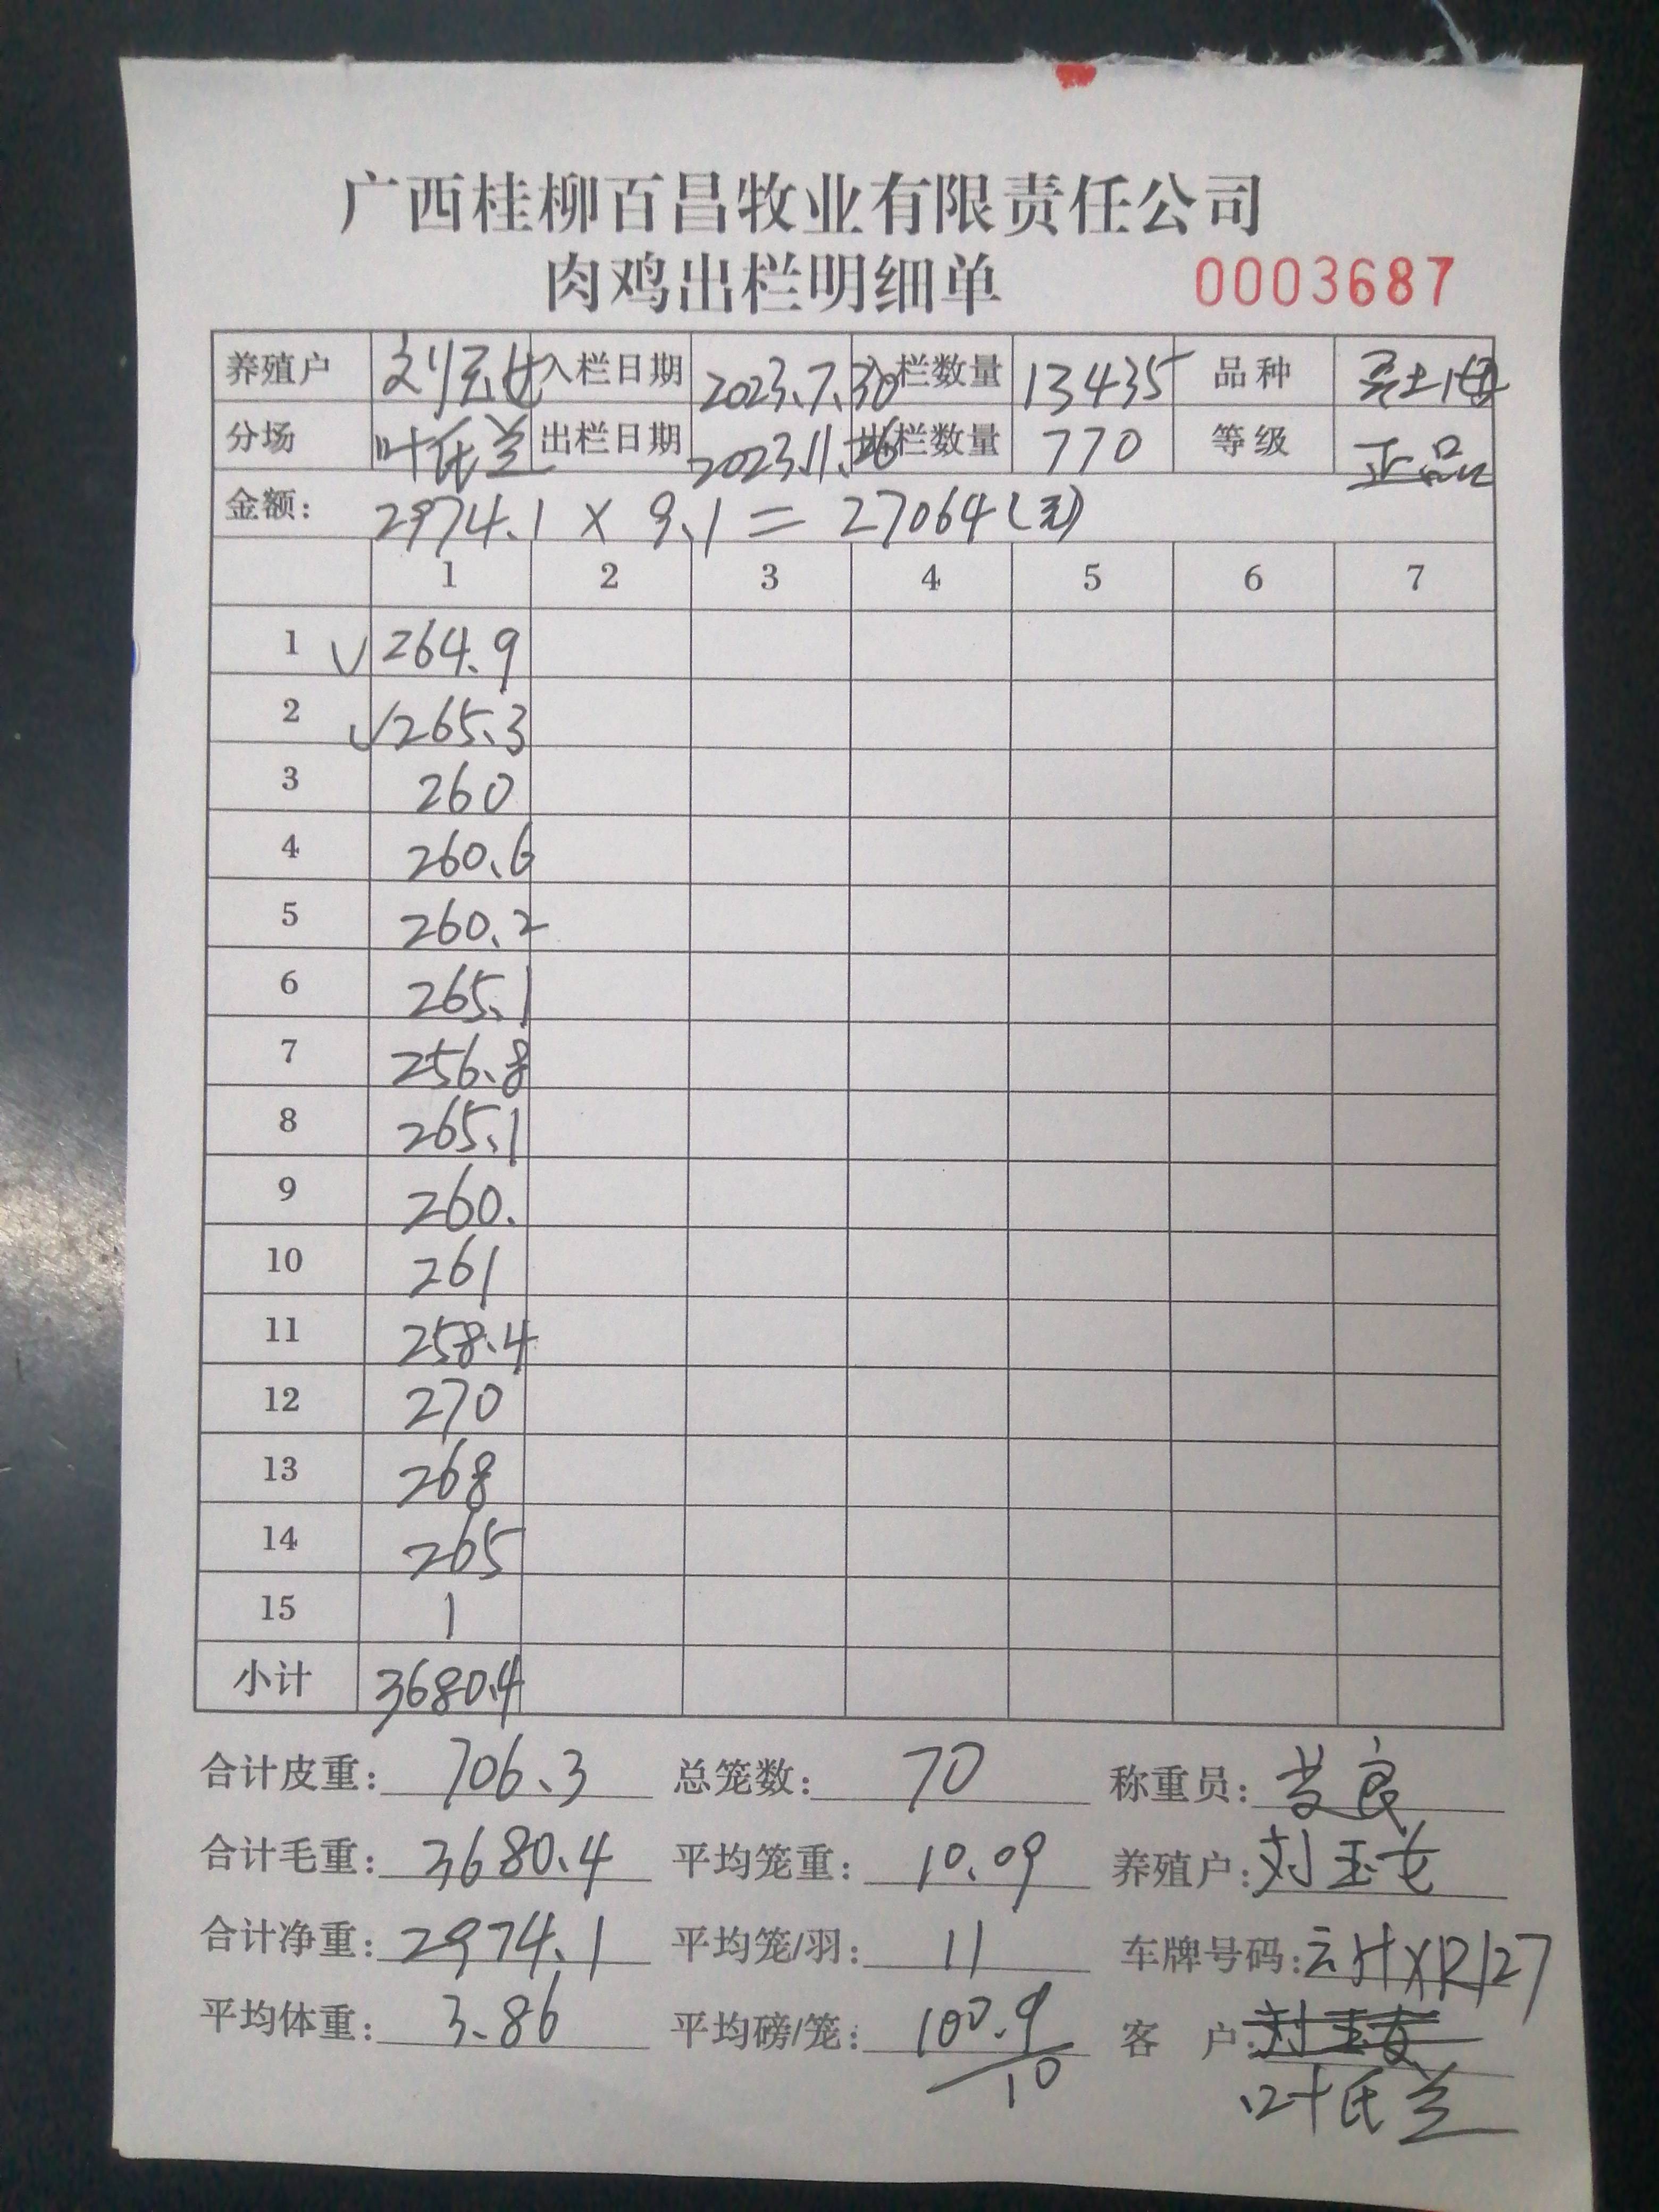 广西桂柳百昌牧业有限责任公司
肉鸡出栏明细单 0003687
养殖户 刘玉女 入栏日期 2023.7.30 入栏数量 13435 品种 土1母
分场 叶氏兰 出栏日期 2023.11.26 出栏数量 770 等级 正品
金额: 2974.1 × 9.1 = 27064(元)
1 2 3 4 5 6 7
1 √ 264.9
2 √ 265.3
3 260
4 260.6
5 260.2
6 265.1
7 256.8
8 265.1
9 260.
10 261
11 258.4
12 270
13 268
14 265
15 1
小计 3680.4
合计皮重: 706.3 总笼数: 70 称重员: 良
合计毛重: 3680.4 平均笼重: 10.09 养殖户: 刘玉女
合计净重: 2974.1 平均笼/羽: 11 车牌号码: 云HXR127
平均体重: 3.86 平均磅/笼: 100.9/10 客 户:
叶氏兰